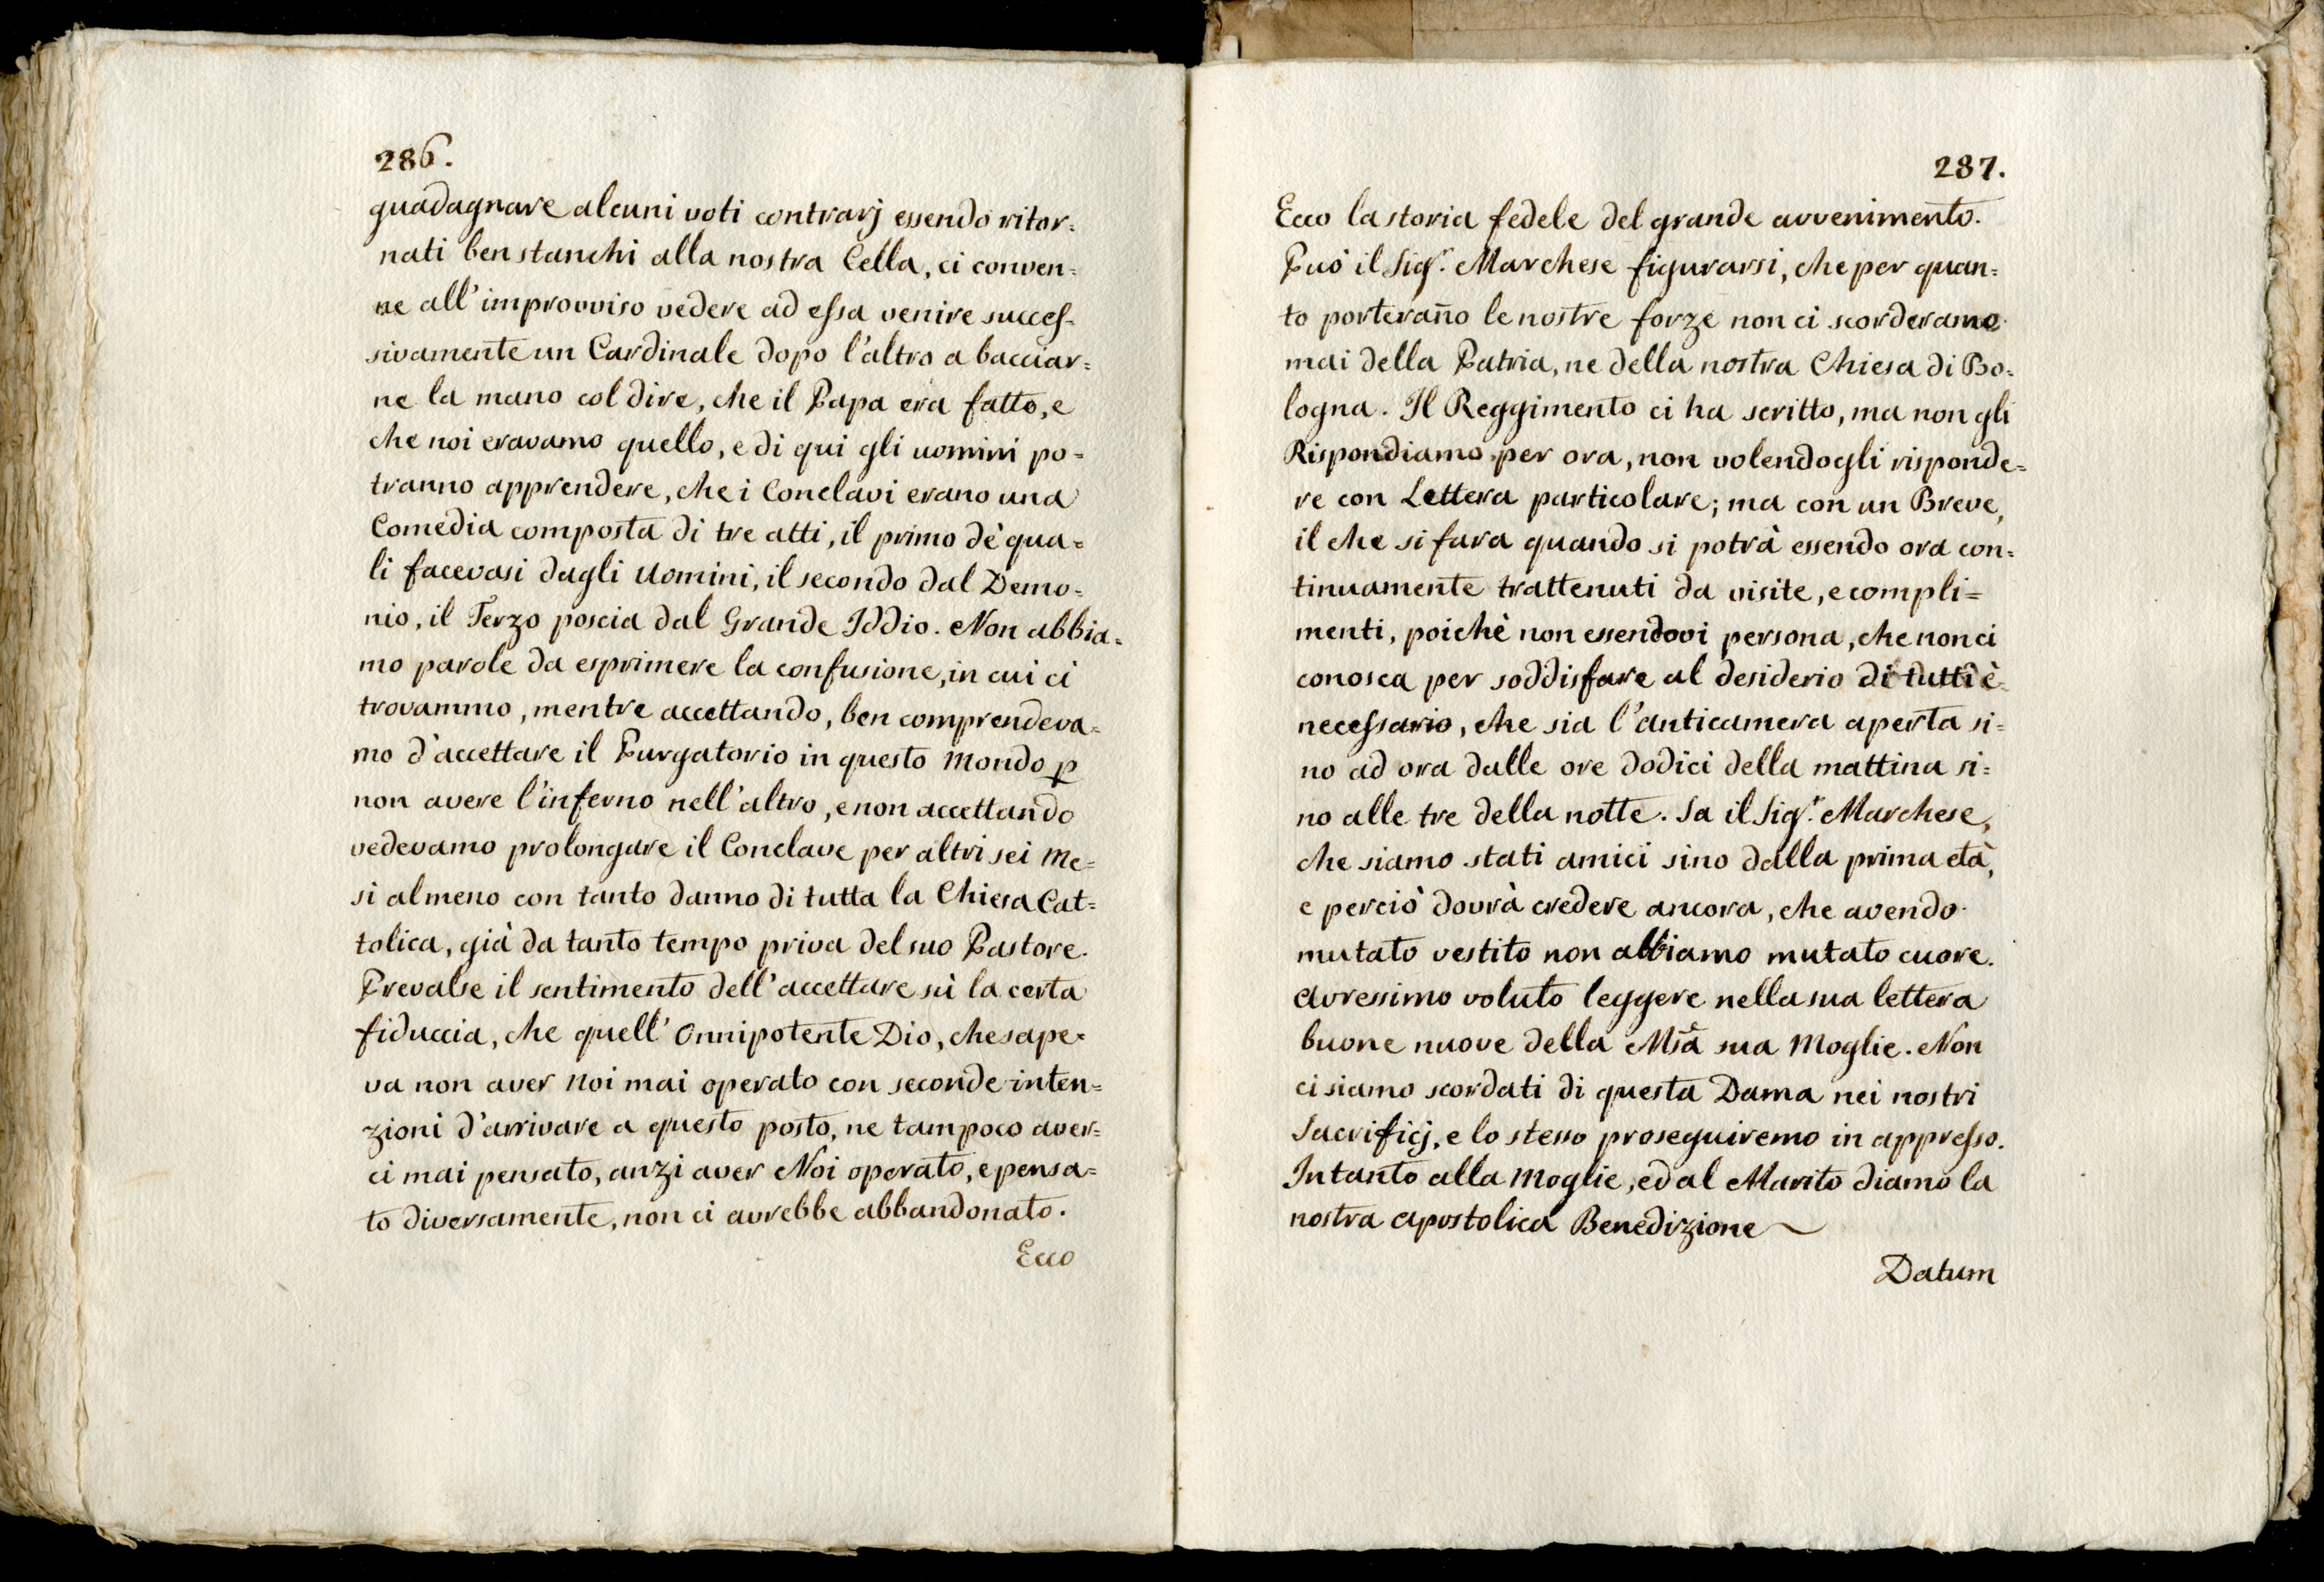 286.
guadagnare alcuni voti contrarj essendo ritor=
nati ben stanchi alla nostra Cella, ci conven=
ne all'improvviso vedere ad essa venire succes=
sivamente un Cardinale dopo l'altro a bacciar=
ne la mano col dire, che il Papa era fatto, e
che noi eravamo quello, e di qui gli uomini po=
tranno apprendere, che i Conclavi erano una
Comedia composta di tre atti, il primo dè qua=
li facevasi dagli Uomini, il secondo dal Demo=
nio, il Terzo poscia dal Grande Iddio. Non abbia=
mo parole da esprimere la confusione, in cui ci
trovammo, mentre accettando, ben comprendeva=
mo d'accettare il Purgatorio in questo Mondo ꝑ
non avere l'inferno nell'altro, e non accettando
vedevamo prolongare il Conclave per altri sei Me=
si almeno con tanto danno di tutta la Chiesa Cat=
tolica, già da tanto tempo priva del suo Pastore.
Prevalse il sentimento dell'accettare sù la certa
fiduccia, che quell'Onnipotente Dio, che sape=
va non aver Noi mai operato con seconde inten=
zioni d'arrivare a questo posto, ne tampoco aver=
ci mai pensato, anzi aver Noi operato, e pensa=
to diversamente, non ci avrebbe abbandonato.
Ecco
287.
Ecco la storia fedele del grande avvenimento.
Può il Sig.r Marchese figurarsi, che per quan=
to porterañno le nostre forze non ci scorderamo
mai della Patria, ne della nostra Chiesa di Bo=
logna. Il Reggimento ci ha scritto, ma non gli
Rispondiamo per ora, non volendogli risponde=
re con Lettera particolare; ma con un Breve,
il che si fara quando si potrà essendo ora con=
tinuamente trattenuti da visite, e compli=
menti, poichè non essendovi persona, che non ci
conosca per soddisfare al desiderio di tutti è
necessario, che sia l'anticamera aperta si=
no ad ora dalle ore dodici della mattina si=
no alle tre della notte. Sa il Sig.r Marchese,
che siamo stati amici sino dalla prima età,
e perciò dovrà credere ancora, che avendo
mutato vestito non abbiamo mutato cuore.
Avressimo voluto leggere nella sua lettera
buone nuove della Msã sua Moglie. Non
ci siamo scordati di questa Dama nei nostri
Sacrificj, e lo stesso proseguiremo in appresso.
Intanto alla Moglie, ed al Marito diamo la
nostra Apostolica Benedizione
Datum